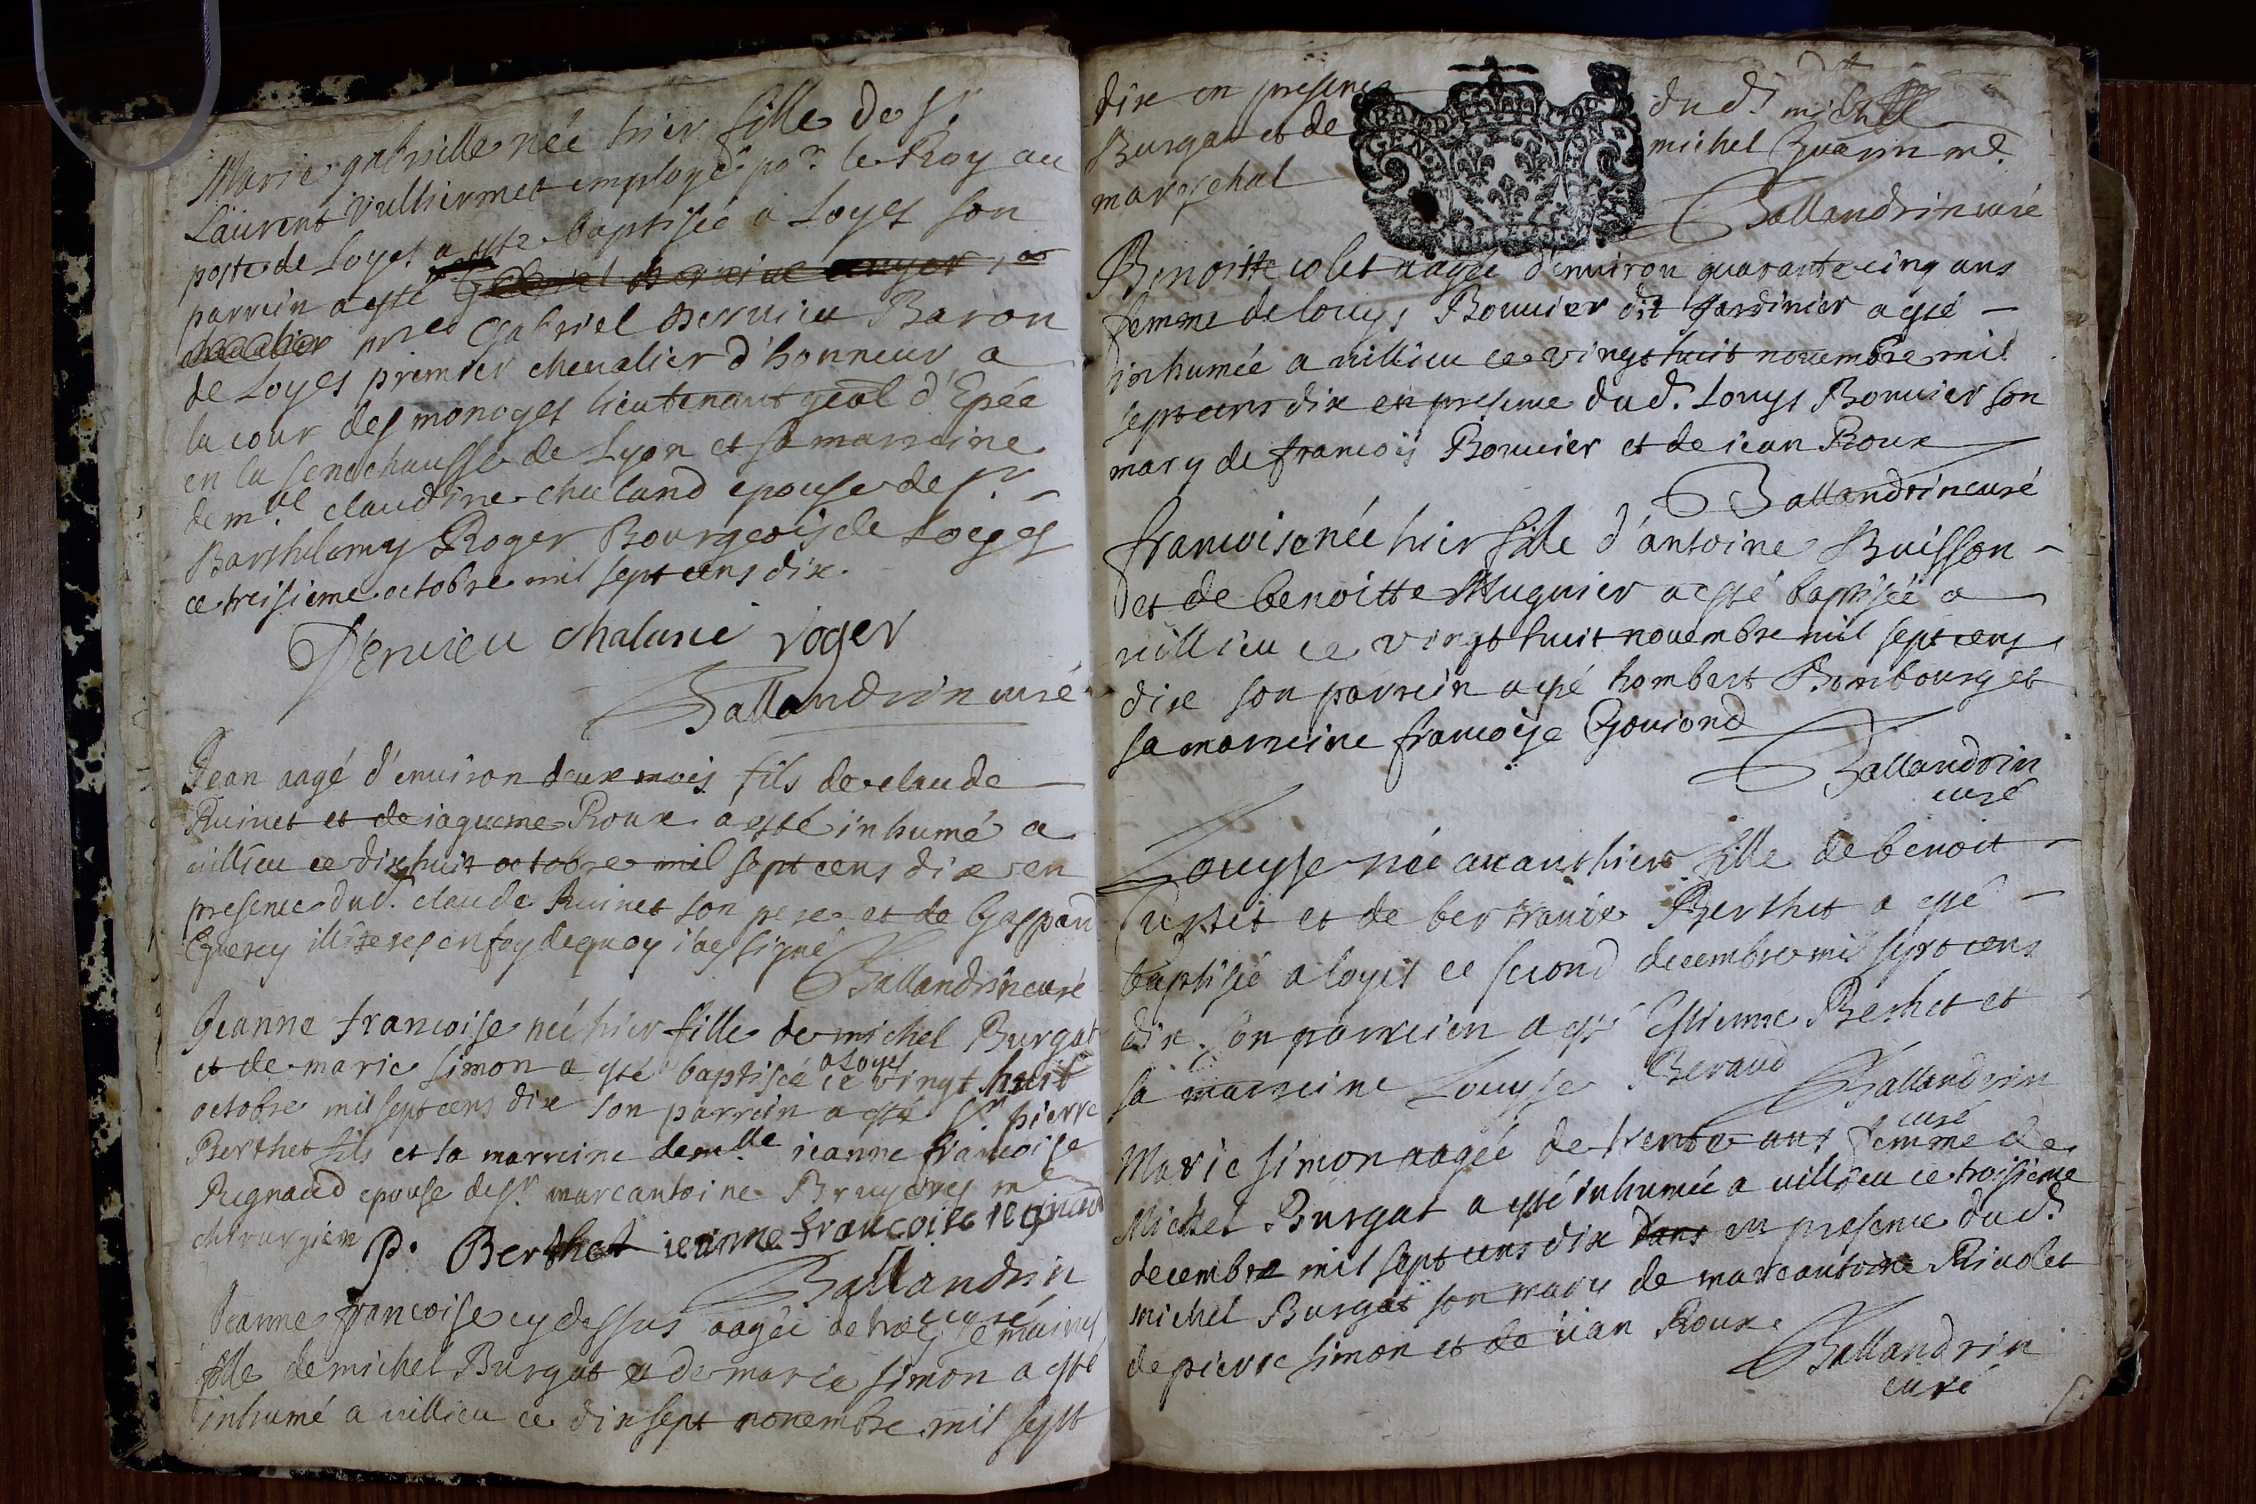 Marie gabrielle née hier fille de Sr
Laurent Vulliermet employé por le Roy au
poste de Loyes a esté baptisée a Loyes son
parrein a esté
chevalier mre Gabriel Dervieu Baron
de Loyes premier chevalier d'honneur a
la cour des monoyes lieutenant gēāl d'Epée
en la senechaussée de Lyon et sa marreine
demlle claudine chaland epouse de Sr
Barthelemy Roger Bourgeois de Loeges
ce treisieme octobre mil sept cens dix.
Dervieu chaland roger
Ballandrin curé
Jean aagé d'environ deux mois fils de claude
Ruinet et de iaqueme Roux a esté inhumé a
villieu ce dixhuit octobre mil sept cens dix en
presence dud. claude Ruinet son pere et de Gaspard
Guerey illiteres en foy de quoy i'ay signé
Ballandrin curé
Jeanne francoise née hier fille de michel Burgat
et de marie simon a esté baptisée a Loyes ce vingt huit
octobre mil sept cens dix son parrein a esté Sr pierre
Berthet fils et sa marreine demlle ieanne francoise
Regnaud epouse de Sr marcantoine Bruyeres me
chirurgien P. Berthet ieanne francoise regnaud
Ballandrin
curé
Jeanne francoise cy dessus aagée de trois semaines
fille de michel Burgat et de marie simon a esté
inhumé a villieu ce dixsept novembre mil sept
dix en presence dud. michel
Burgat et de michel Guerin me.
mareschal
Ballandrin curé
Benoitte colet aagée d'environ quarante cinq ans
femme de louys Bouvier dit Jardinier a esté
inhumée a villieu ce vingt huit novembre mil
sept cens dix en presence dud. Louys Bouvier son
mary de francois Bouvier et de iean Roux
Ballandrin curé
francoise née hier fille d'antoine Buisson
et de benoitte Mugnier a esté baptisée a
villieu ce vingt huit novembre mil sept cens
dix son parrein a esté hombert Bombourg et
sa marreine francoise Goviond
Ballandrin
curé
Louyse née avanthier fille de benoit
et de bertrande Berthet a esté
baptisée a loyes ce second decembre mil sept cens
dix son parrein a esté Estienne Berhet et
sa marreine Louyse Beraud
Ballandrin
curé
Marie simon aagée de trente ans femme de
Michel Burgat a esté inhumée a villieu ce troisieme
decembre mil sept cens dix dans en presence dud.
michel Burgat son mary de marcantoine Rivolet
de pierre simon et de iean Roux
Ballandrin
curé